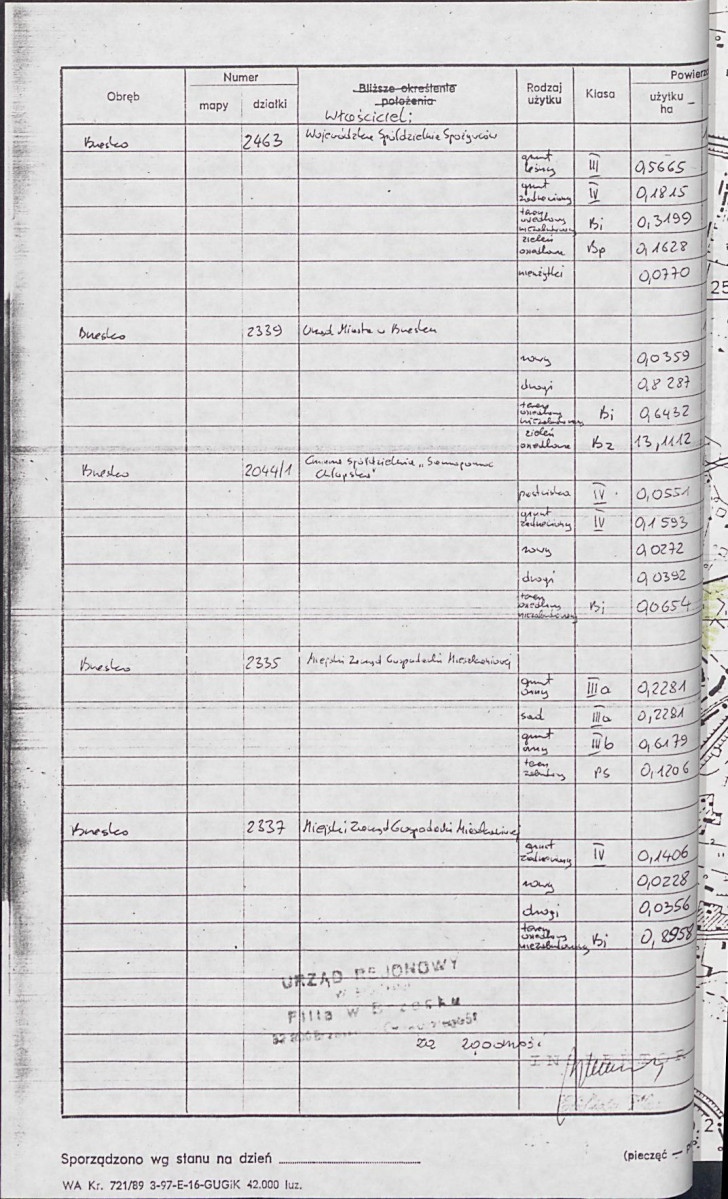 Obręb
Numer
mapy
działki
Bliższe określenie
położenia
Właściciel:
Rodzaj
użytku
Klasa
użytku
ha
Brzesko 2463 Wojewódzka Spółdzielnia Spożywców
grunt
leśny III 0,5665
grunt
zadrzewiony IV 0,1815
tereny
osiedlowy
niezabudowany Bi 0,3199
zieleń
osiedlowa Bp 0,1628
nieużytki 0,0770
Brzesko 2339 Urząd Miasta w Brzesku
rowy 0,0359
drogi 0,8287
tereny
osiedlowy
niezabudowany Bi 0,6432
zieleń
osiedlowa Bz 13,1112
Brzesko 2044/1 Gminna Spółdzielnia „Samopomoc
Chłopska"
pastwiska IV 0,0551
grunt
zadrzewiony IV 0,1593
rowy 0,0272
drogi 0,0392
tereny
osiedlowy
niezabudowany Bi 0,0654
Brzesko 2335 Miejski Zarząd Gospodarki Mieszkaniowej
grunt
orny IIIa 0,2281
sad IIIa 0,2281
grunt
orny IIIb 0,6179
tereny
zabudowy PS 0,1206
Brzesko 2337 Miejski Zarząd Gospodarki Mieszkaniowej
grunt
zadrzewiony IV 0,1406
rowy 0,0228
drogi 0,0356
tereny
osiedlowy
niezabudowany Bi 0,8958
URZĄD REJONOWY
Filia w Brzesku
za zgodność
Sporządzono wg stanu na dzień
(pieczęć –
WA Kr. 721/89 3-97-E-16-GUGiK 42.000 luz.
25
2